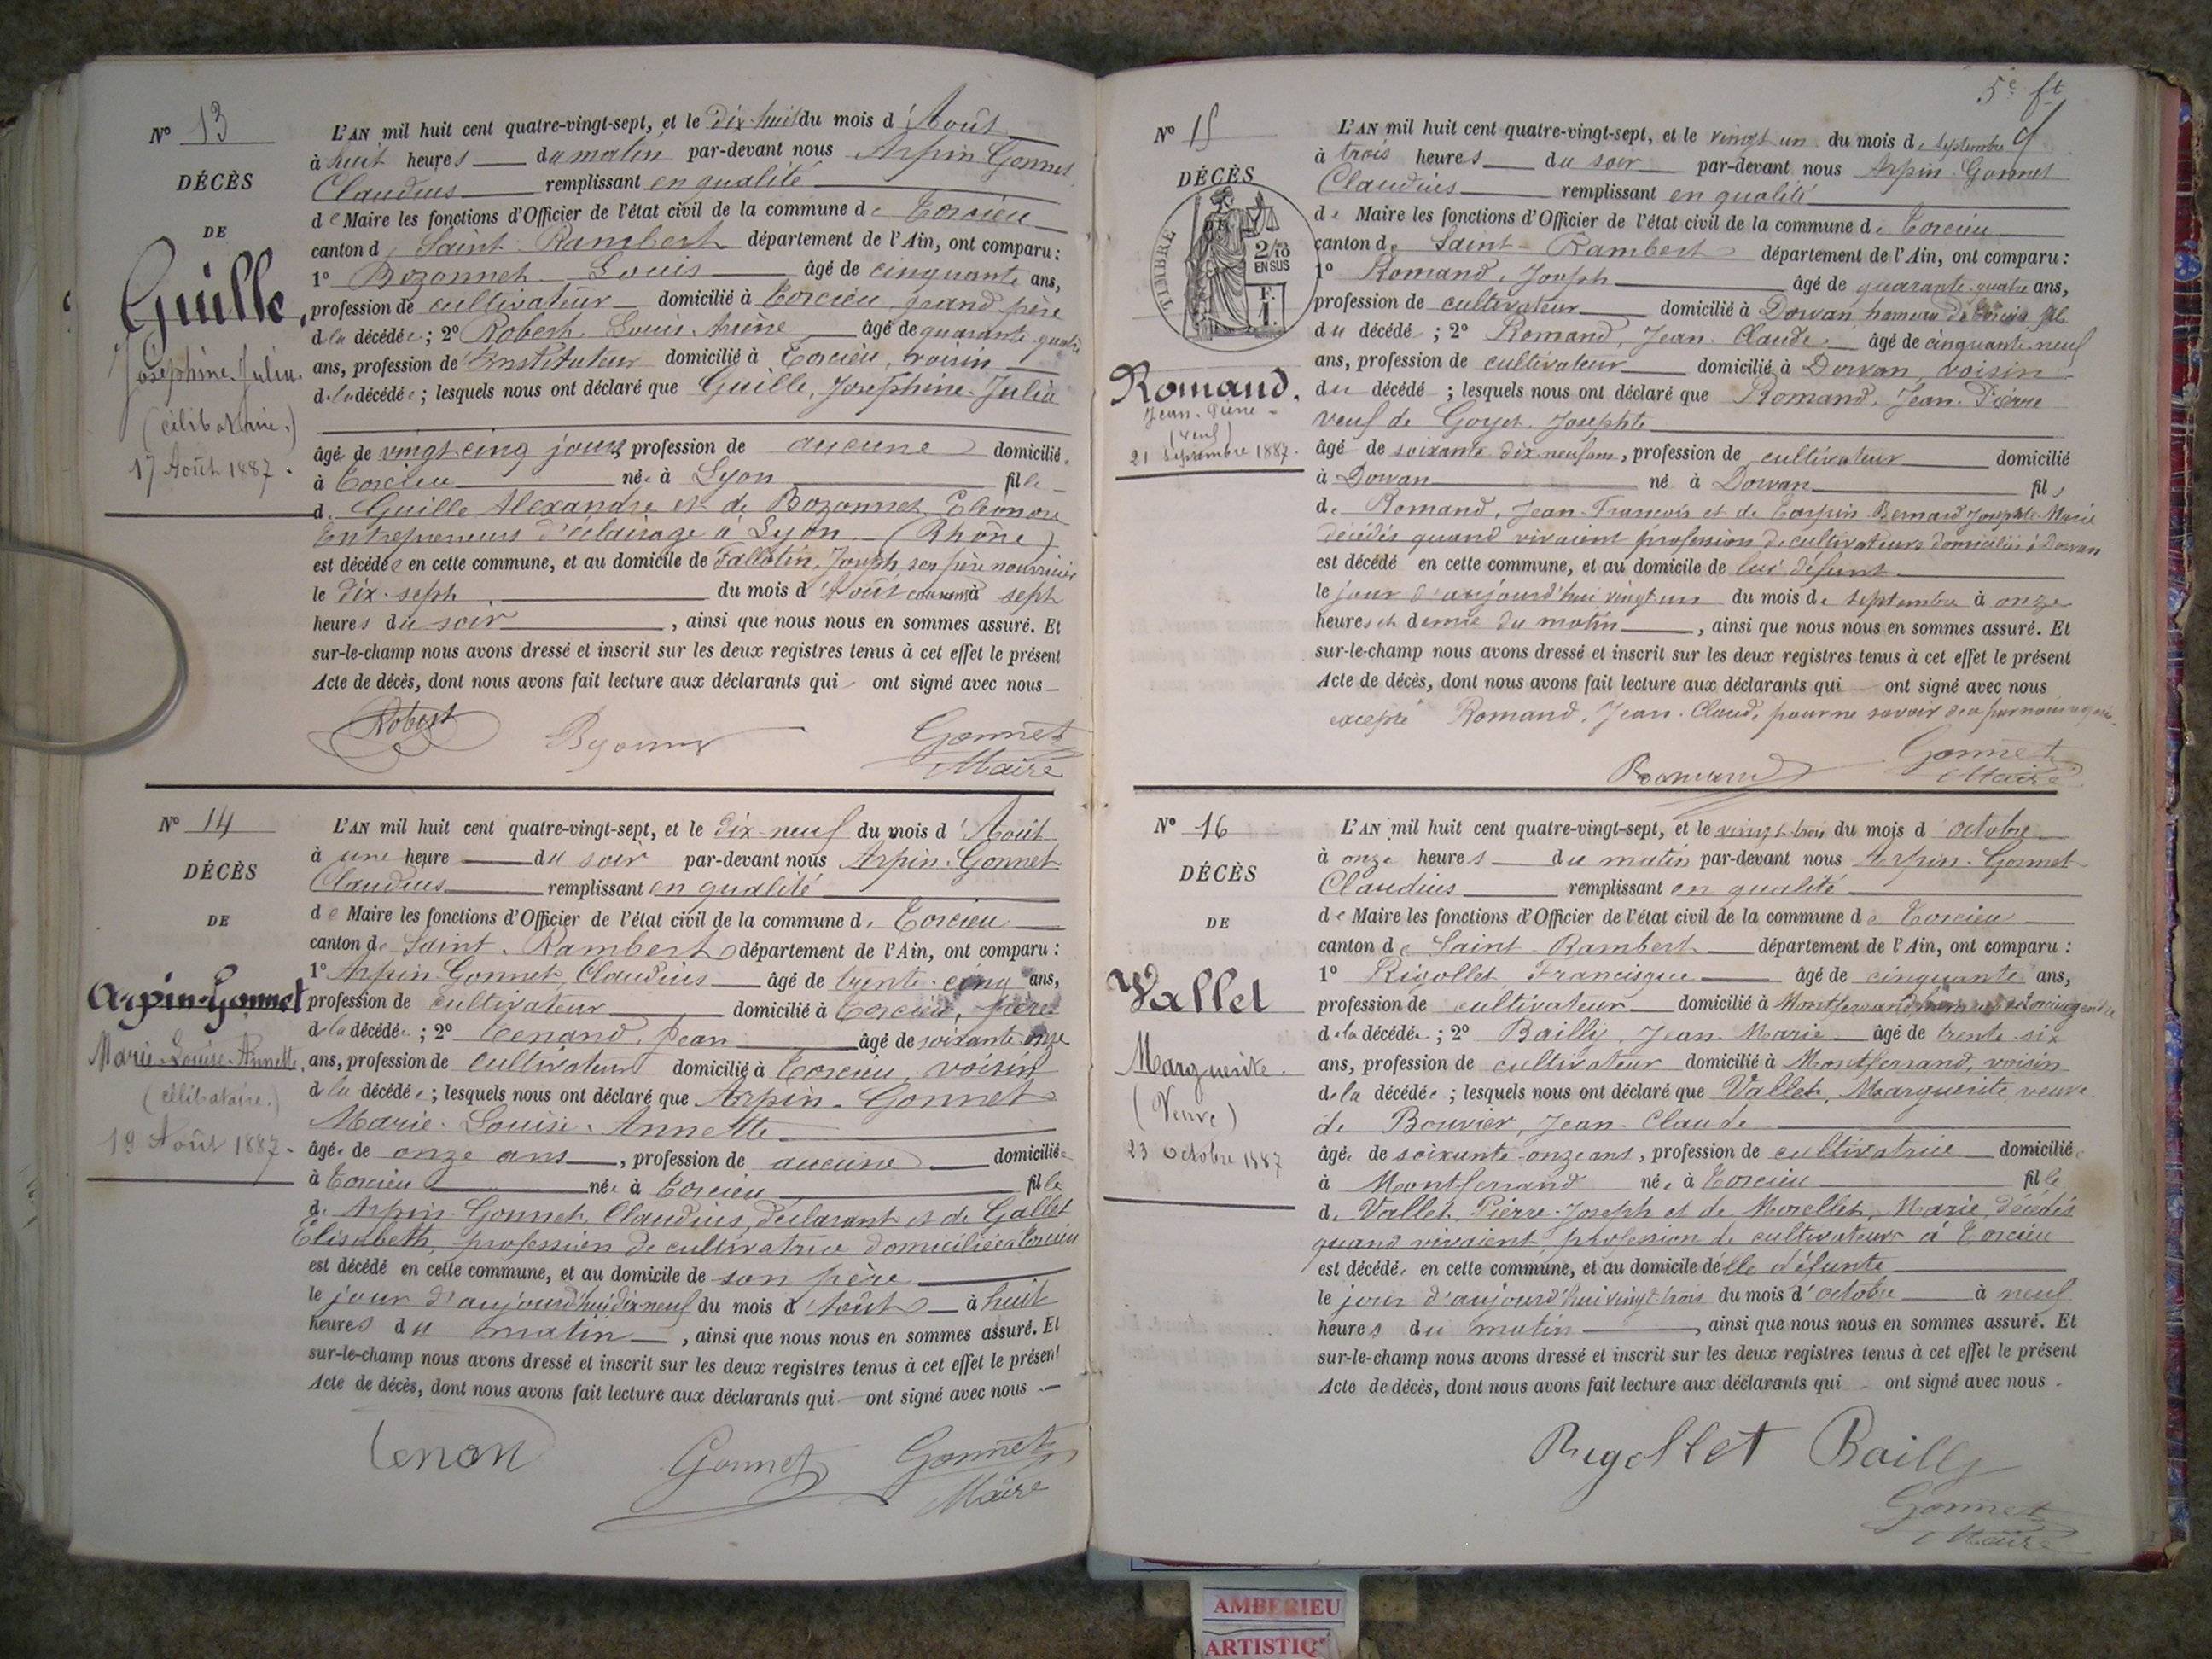 N° 13
DÉCÈS
DE
Guille,
Joséphine Julia.
(célibataire.)
17 Août 1887.
L'AN mil huit cent quatre-vingt-sept, et le dix-huit du mois d'Août
à huit heures du matin par-devant nous Arpin Gonnet
Claudius remplissant en qualité
de Maire les fonctions d'Officier de l'état civil de la commune de Torcieu
canton de Saint Rambert département de l'Ain, ont comparu :
1° Bozonnet Louis âgé de cinquante ans,
profession de cultivateur domicilié à Torcieu, grand père
de la décédée ; 2° Robert, Louis âgé de quarante quatre
ans, profession de Instituteur domicilié à Torcieu, voisin
de la décédée ; lesquels nous ont déclaré que Guille, Joséphine Julia
âgé de vingt cinq jours profession de aucune domicilié
à Torcieu née à Lyon fille
de Guille Alexandre et de Bozonnet Eléonore
Entrepreneurs d'éclairage à Lyon (Rhône)
est décédée en cette commune, et au domicile de Fallotin, Joseph son père nourricier
le dix-sept du mois d'Août courant à sept
heures du soir, ainsi que nous nous en sommes assuré. Et
sur-le-champ nous avons dressé et inscrit sur les deux registres tenus à cet effet le présent
Acte de décès, dont nous avons fait lecture aux déclarants qui ont signé avec nous
Robert Gonnet
Maire
N° 14
DÉCÈS
DE
Arpin-Gonnet
Marie-Louise-Annette,
(célibataire.)
19 Août 1887.
L'AN mil huit cent quatre-vingt-sept, et le dix-neuf du mois d'Août
à une heure du soir par-devant nous Arpin-Gonnet
Claudius remplissant en qualité
de Maire les fonctions d'Officier de l'état civil de la commune de Torcieu
canton de Saint-Rambert département de l'Ain, ont comparu :
1° Arpin Gonnet, Claudius âgé de trente-cinq ans,
profession de cultivateur domicilié à Torcieu, père
de la décédée ; 2° Tenand, Jean âgé de soixante-onze
ans, profession de cultivateur domicilié à Torcieu, voisin
de la décédée ; lesquels nous ont déclaré que Arpin-Gonnet
Marie-Louise-Annette
âgée de onze ans, profession de aucune domiciliée
à Torcieu née à Torcieu fille
de Arpin-Gonnet, Claudius, déclarant et de Gallet
Elisabeth, profession de cultivatrice domiciliée à Torcieu
est décédé en cette commune, et au domicile de son père
le jour d'aujourd'hui dix-neuf du mois d'Août à huit
heures du matin, ainsi que nous nous en sommes assuré. Et
sur-le-champ nous avons dressé et inscrit sur les deux registres tenus à cet effet le présent
Acte de décès, dont nous avons fait lecture aux déclarants qui ont signé avec nous
Tenan Gonnet Gonnet
Maire
5e ft
N° 15
DÉCÈS
TIMBRE
2/10
EN SUS
F.
1.
Romand.
Jean-Pierre
(veuf)
21 Septembre 1887.
L'AN mil huit cent quatre-vingt-sept, et le vingt un du mois de septembre
à trois heures du soir par-devant nous Arpin-Gonnet
Claudius remplissant en qualité
de Maire les fonctions d'Officier de l'état civil de la commune de Torcieu
canton de Saint-Rambert département de l'Ain, ont comparu :
1° Romand, Joseph âgé de quarante-quatre ans,
profession de cultivateur domicilié à Dorvan hameau de Torcieu fils
du décédé ; 2° Romand, Jean-Claude, âgé de cinquante-neuf
ans, profession de cultivateur domicilié à Dorvan, voisin
du décédé ; lesquels nous ont déclaré que Romand, Jean-Pierre
veuf de Goyet, Josephte
âgé de soixante dix-neuf ans, profession de cultivateur domicilié
à Dorvan né à Dorvan fils
de Romand, Jean-François et de Bernard Josephte-Marie
décédés quand vivaient profession de cultivateurs domiciliés à Dorvan
est décédé en cette commune, et au domicile de lui défunt
le jour d'aujourd'hui vingt un du mois de septembre à onze
heures et demie du matin, ainsi que nous nous en sommes assuré. Et
sur-le-champ nous avons dressé et inscrit sur les deux registres tenus à cet effet le présent
Acte de décès, dont nous avons fait lecture aux déclarants qui ont signé avec nous
excepté Romand, Jean-Claude, pour ne savoir de ce par nous requis.
Romand Gonnet
Maire
N° 16
DÉCÈS
DE
Vallet
Marguerite.
(Veuve)
23 Octobre 1887
L'AN mil huit cent quatre-vingt-sept, et le vingt trois du mois d'octobre
à onze heures du matin par-devant nous Arpin-Gonnet
Claudius remplissant en qualité
de Maire les fonctions d'Officier de l'état civil de la commune de Torcieu
canton de Saint-Rambert département de l'Ain, ont comparu :
1° Rigollet Francisque âgé de cinquante ans,
profession de cultivateur domicilié à Montferrand hameau de Torcieu gendre
de la décédée ; 2° Bailly, Jean Marie âgé de trente six
ans, profession de cultivateur domicilié à Montferrand, voisin
de la décédée ; lesquels nous ont déclaré que Vallet, Marguerite, veuve
de Bouvier, Jean-Claude
âgée de soixante-onze ans, profession de cultivatrice domiciliée
à Montferrand née à Torcieu fille
de Vallet, Pierre-Joseph et de Morellet, Marie, décédés
quand vivaient, profession de cultivateurs à Torcieu
est décédée en cette commune, et au domicile d'elle défunte
le jour d'aujourd'hui vingt-trois du mois d'octobre à neuf
heures du matin, ainsi que nous nous en sommes assuré. Et
sur-le-champ nous avons dressé et inscrit sur les deux registres tenus à cet effet le présent
Acte de décès, dont nous avons fait lecture aux déclarants qui ont signé avec nous.
Rigollet Bailly
Gonnet
Maire
AMBERIEU
ARTISTIQ